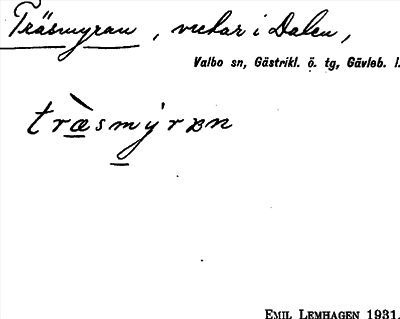 Träsmyran, vretar i Dalen,
Valbo sn, Gästrikl. ö. tg, Gävleb. l.
træ̀smýrɐn
EMIL LEMHAGEN 1931.